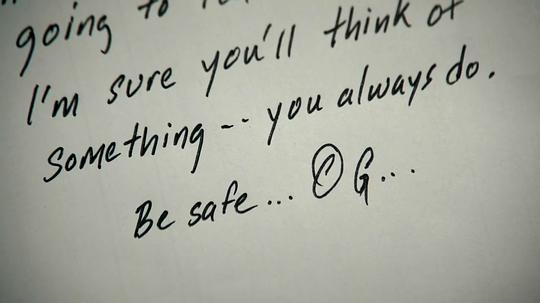 going to
I'm sure you'll think of
something -- you always do.
Be safe... O G...